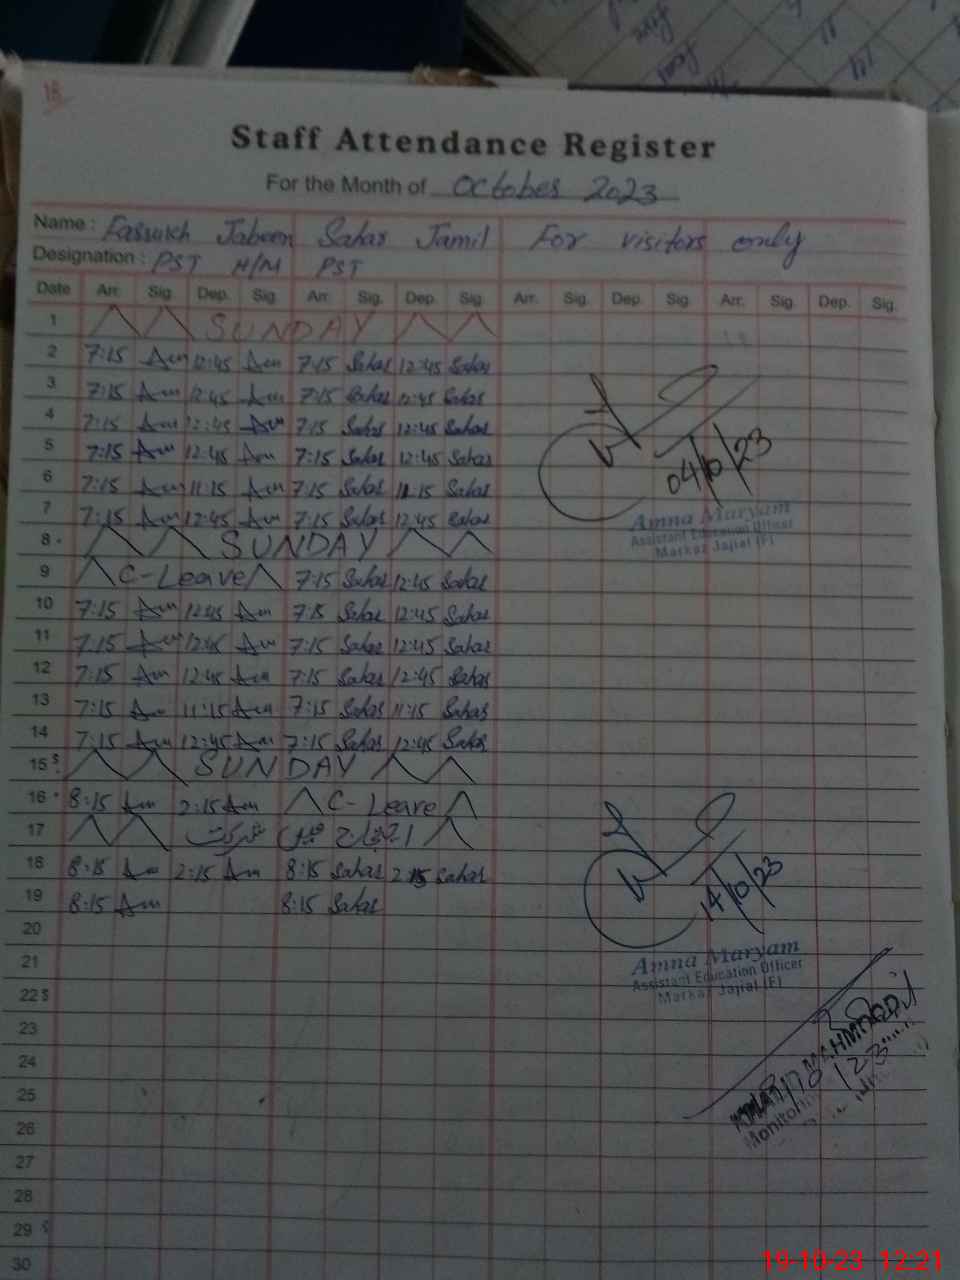 18
Staff Attendance Register
For the Month of October 2023
Name : Farrukh Jabeen Sahar Jamil For visitors only
Designation : PST H/M PST
Date Arr. Sig. Dep. Sig. Arr. Sig. Dep. Sig. Arr. Sig. Dep. Sig. Arr. Sig. Dep. Sig.
1 SUNDAY
2 7:15 Am 12:45 Am 7:15 Sahar 12:45 Sahar
3 7:15 Am 12:45 Am 7:15 Sahar 12:45 Sahar
4 7:15 Am 12:45 Am 7:15 Sahar 12:45 Sahar
5 7:15 Am 12:45 Am 7:15 Sahar 12:45 Sahar
6 7:15 Am 11:15 Am 7:15 Sahar 11:15 Sahar
7 7:15 Am 12:45 Am 7:15 Sahar 12:45 Sahar
8 SUNDAY
9 C-Leave 7:15 Sahar 12:45 Sahar
10 7:15 Am 12:45 Am 7:15 Sahar 12:45 Sahar
11 7:15 Am 12:45 Am 7:15 Sahar 12:45 Sahar
12 7:15 Am 12:45 Am 7:15 Sahar 12:45 Sahar
13 7:15 Am 11:15 Am 7:15 Sahar 11:15 Sahar
14 7:15 Am 12:45 Am 7:15 Sahar 12:45 Sahar
15 S SUNDAY
16 8:15 Am 2:15 Am C-Leave
17 احتجاج میں شرکت
18 8:15 Am 2:15 Am 8:15 Sahar 2:15 Sahar
19 8:15 Am 8:15 Sahar
20
21
22 S
23
24
25
26
27
28
29 S
30
04/10/23
Amna Maryam
Assistant Education Officer
Markaz Jajial (F)
14/10/23
Amna Maryam
Assistant Education Officer
Markaz Jajial (F)
MAHMOOD
Monitoring
19-10-23 12:21